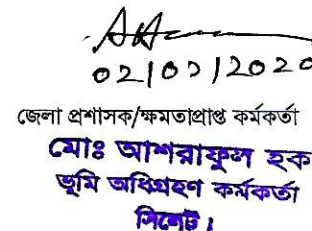 02/03/2020
জেলা প্রশাসক/ক্ষমতাপ্রাপ্ত কর্মকর্তা
মোঃ আশরাফুল হক
ভূমি অধিগ্রহণ কর্মকর্তা
সিলেট।